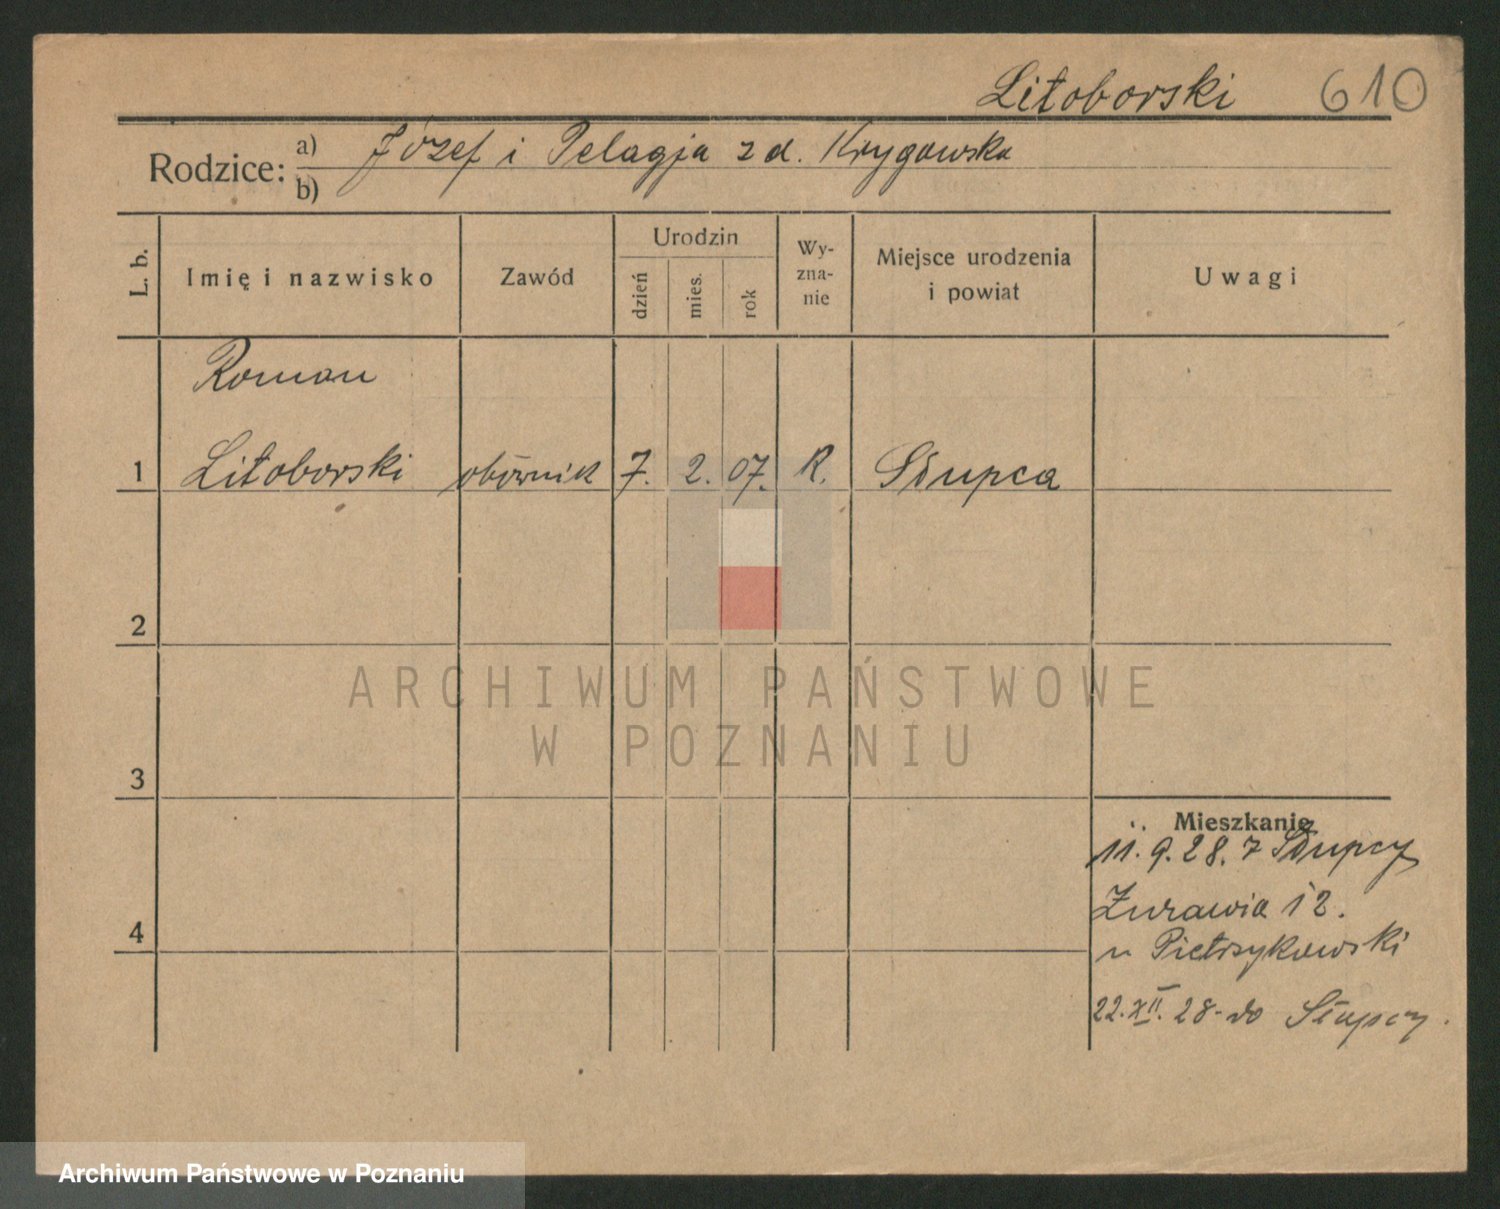 Litoborski 610
Rodzice: a) Józef i Pelagja z d. Krygowska
b)
L. b. Imię i nazwisko Zawód Urodzin dzień mies. rok Wy-zna-nie Miejsce urodzenia i powiat Uwagi
Roman
1 Litoborski obòwnik 7. 2. 07. R. Słupca
2
ARCHIWUM PAŃSTWOWE
W POZNANIU
3
Mieszkanie
11. 9. 28. z Słupcy
Żurawia 12.
4
u Pietrzykowski
22. XII. 28 - do Słupcy.
Archiwum Państwowe w Poznaniu